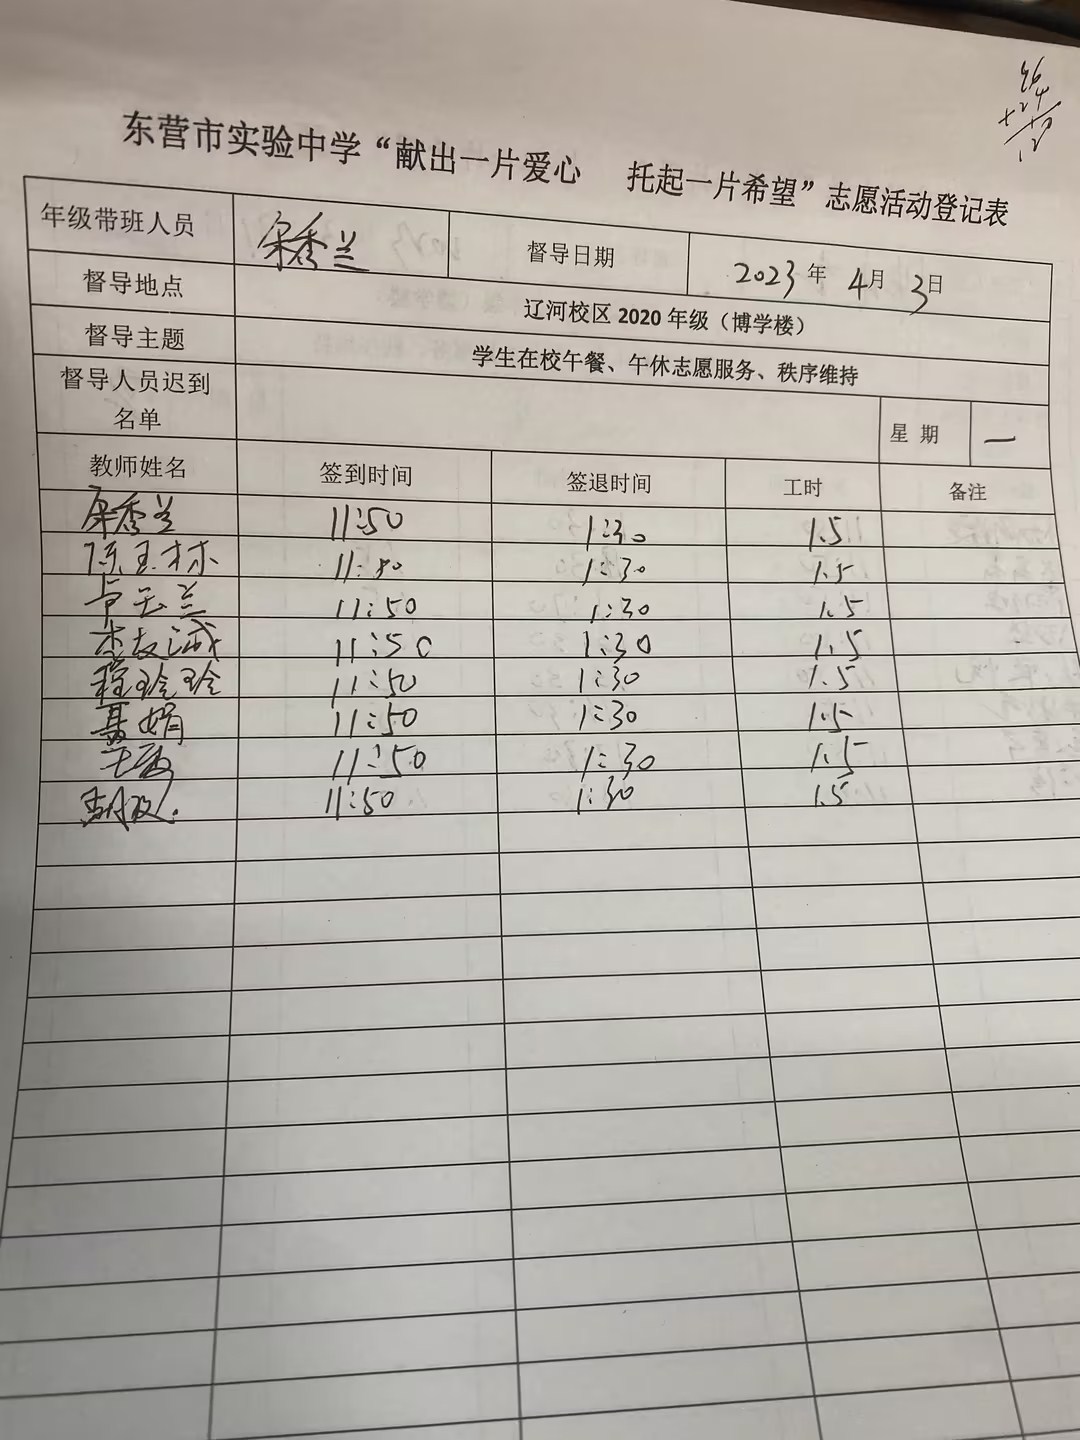 东营市实验中学“献出一片爱心 托起一片希望”志愿活动登记表
年级带班人员 宋秀兰 督导日期 2023年4月3日
督导地点 辽河校区2020年级（博学楼）
督导主题 学生在校午餐、午休志愿服务、秩序维持
督导人员迟到名单 星期 一
教师姓名 签到时间 签退时间 工时 备注
宋秀兰 11:50 1:30 1.5
陈玉林 11:50 1:30 1.5
11:50 1:30 1.5
11:50 1:30 1.5
程玲玲 11:50 1:30 1.5
聂娟 11:50 1:30 1.5
王敏 11:50 1:30 1.5
11:50 1:30 1.5